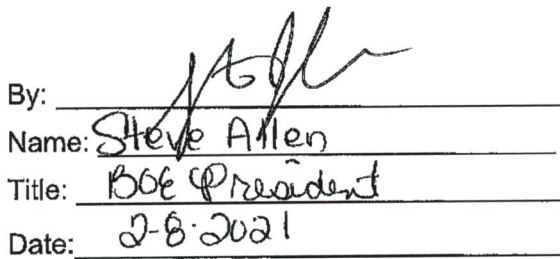 By:
Name: Steve Allen
Title: BOE President
Date: 2-8-2021